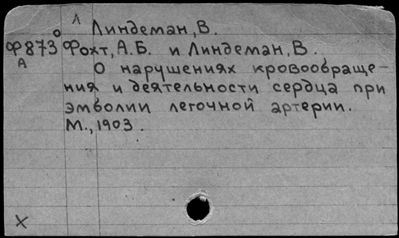 Л
Линдеман, В.
Ф873 Фохт, А.Б. и Линдеман, В.
А
О нарушениях кровообраще-
ния и деятельности сердца при
эмболии легочной артерии.
М., 1903.
X